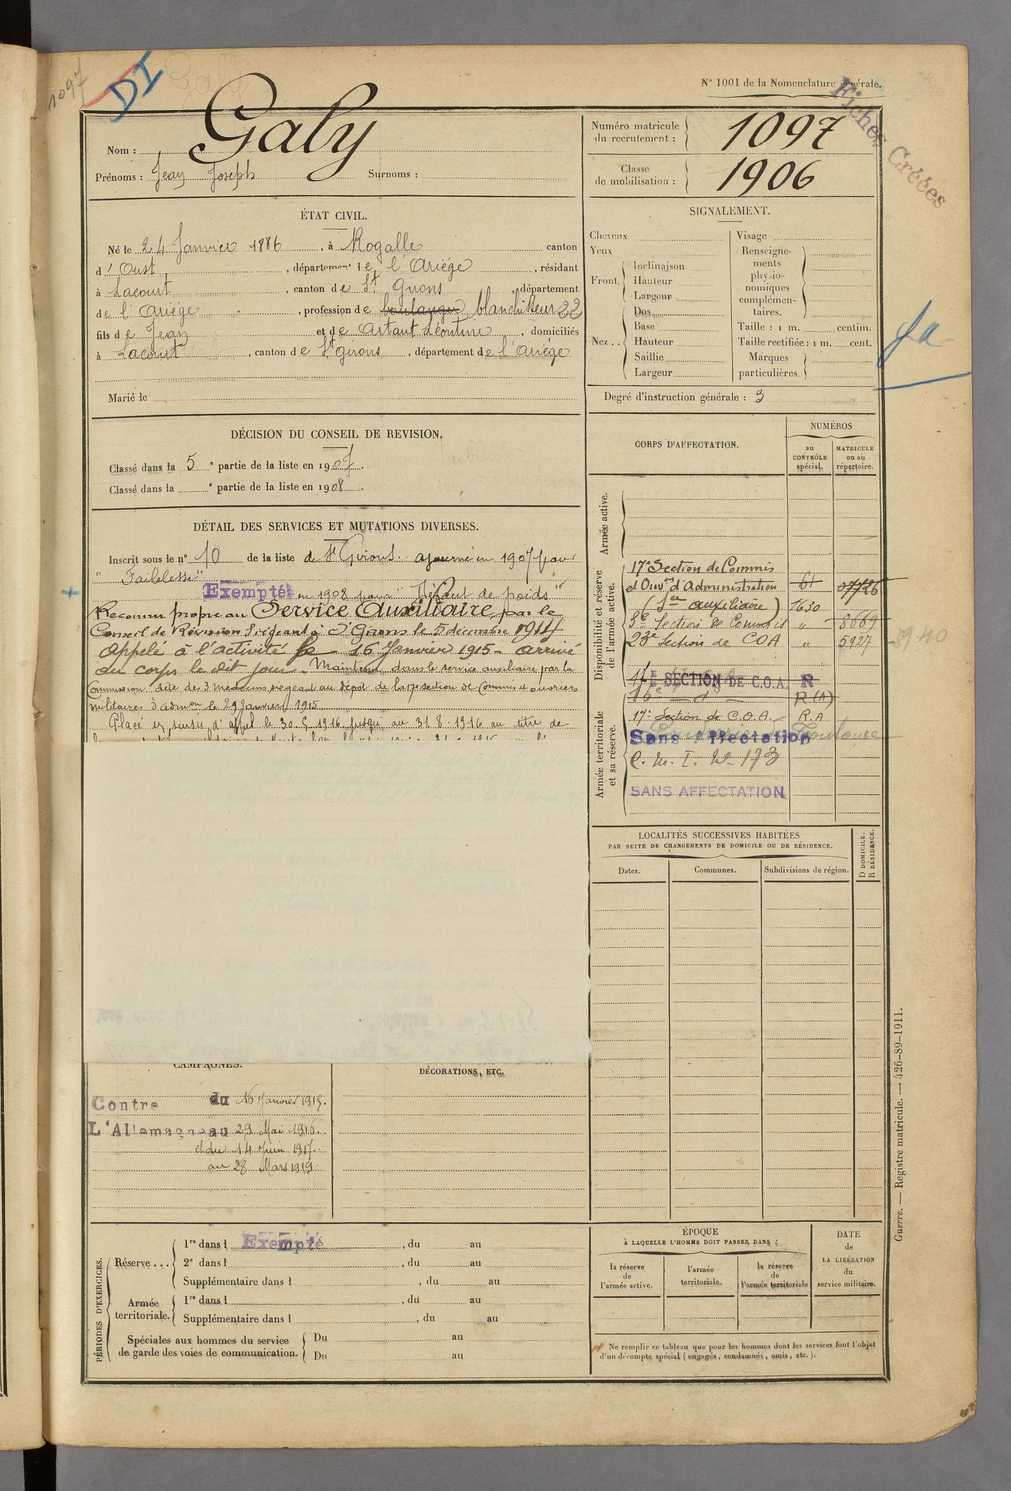 1097
DI
Galy
N° 1001 de la Nomenclature générale.
Fiches Créées
Nom : Galy
Prénoms : Jean Joseph Surnoms :
Numéro matricule du recrutement : 1097
Classe de mobilisation : 1906
ÉTAT CIVIL.
Né le 24 Janvier 1886, à Rogalle canton
d'Oust, département de l'Ariége, résidant
à Lacourt, canton de St Girons, département
de l'Ariége, profession de boulanger blanchisseur 22
fils de Jean et de Artaut Léontine, domiciliés
à Lacourt, canton de St Girons, département de l'Ariége
Marié le
SIGNALEMENT.
Cheveux
Yeux
Front.
Inclinaison
Hauteur
Largeur
Nez..
Dos
Base
Hauteur
Saillie
Largeur
Visage
Renseignements physionomiques complémentaires.
Taille : 1 m. centim.
Taille rectifiée : 1 m. cent.
Marques particulières.
Degré d'instruction générale : 3
DÉCISION DU CONSEIL DE REVISION.
Classé dans la 5e partie de la liste en 1907.
Classé dans la e partie de la liste en 1908.
DÉTAIL DES SERVICES ET MUTATIONS DIVERSES.
Inscrit sous le n° 10 de la liste de St Girons. ajourné en 1907 pour
"Faiblesse"
Exempté en 1908 pour "Défaut de poids"
Reconnu propre au Service Auxiliaire par le
Conseil de Révision siégeant à St Girons le 5 décembre 1914
Appelé à l'activité le 16 Janvier 1915 - arrivé
au corps le dit jour. Maintenu dans le service auxiliaire par la
Commission dite des 3 médecins siégeant au dépôt de la 17e section de Commis et ouvriers
militaires d'admon le 29 Janvier 1915
Placé en sursis d'appel le 30.5.1916 jusqu'au 31.8.1916 au titre de
CORPS D'AFFECTATION.
NUMÉROS
au CONTRÔLE spécial.
MATRICULE ou au répertoire.
Armée active.
Disponibilité et réserve de l'armée active.
17e Section de Commis
et Ouvers d'Administration 61 07726
(Ser auxiliaire) 1630
5e Section de Commis " 8669
23e Section de COA " 5927
SECTION DE C.O.A. R
16e do R (A)
Armée territoriale et sa réserve.
17e Section de C.O.A. R.A
Sans affectation
Toulouse
C. M. I. No 173
SANS AFFECTATION
LOCALITÉS SUCCESSIVES HABITÉES
PAR SUITE DE CHANGEMENTS DE DOMICILE OU DE RÉSIDENCE.
Dates. Communes. Subdivisions de région.
D DOMICILE.
R RÉSIDENCE.
CAMPAGNES.
Contre du 16 Janvier 1915.
L'Allemagne au 29 Mai 1916.
et du 14 Juin 1917.
au 28 Mars 1919.
DÉCORATIONS, ETC.
PÉRIODES D'EXERCICES.
Réserve...
1re dans l Exempté, du au
2e dans l , du au
Supplémentaire dans l , du au
Armée territoriale.
1re dans l , du au
Supplémentaire dans l , du au
Spéciales aux hommes du service
de garde des voies de communication.
Du au
Du au
ÉPOQUE
À LAQUELLE L'HOMME DOIT PASSER DANS :
la réserve de l'armée active.
l'armée territoriale.
la réserve de l'armée territoriale
DATE
de
LA LIBÉRATION
du
service militaire.
Ne remplir ce tableau que pour les hommes dont les services font l'objet
d'un décompte spécial (engagés, condamnés, omis, etc.).
Guerre. — Registre matricule. — 426-89-1911.